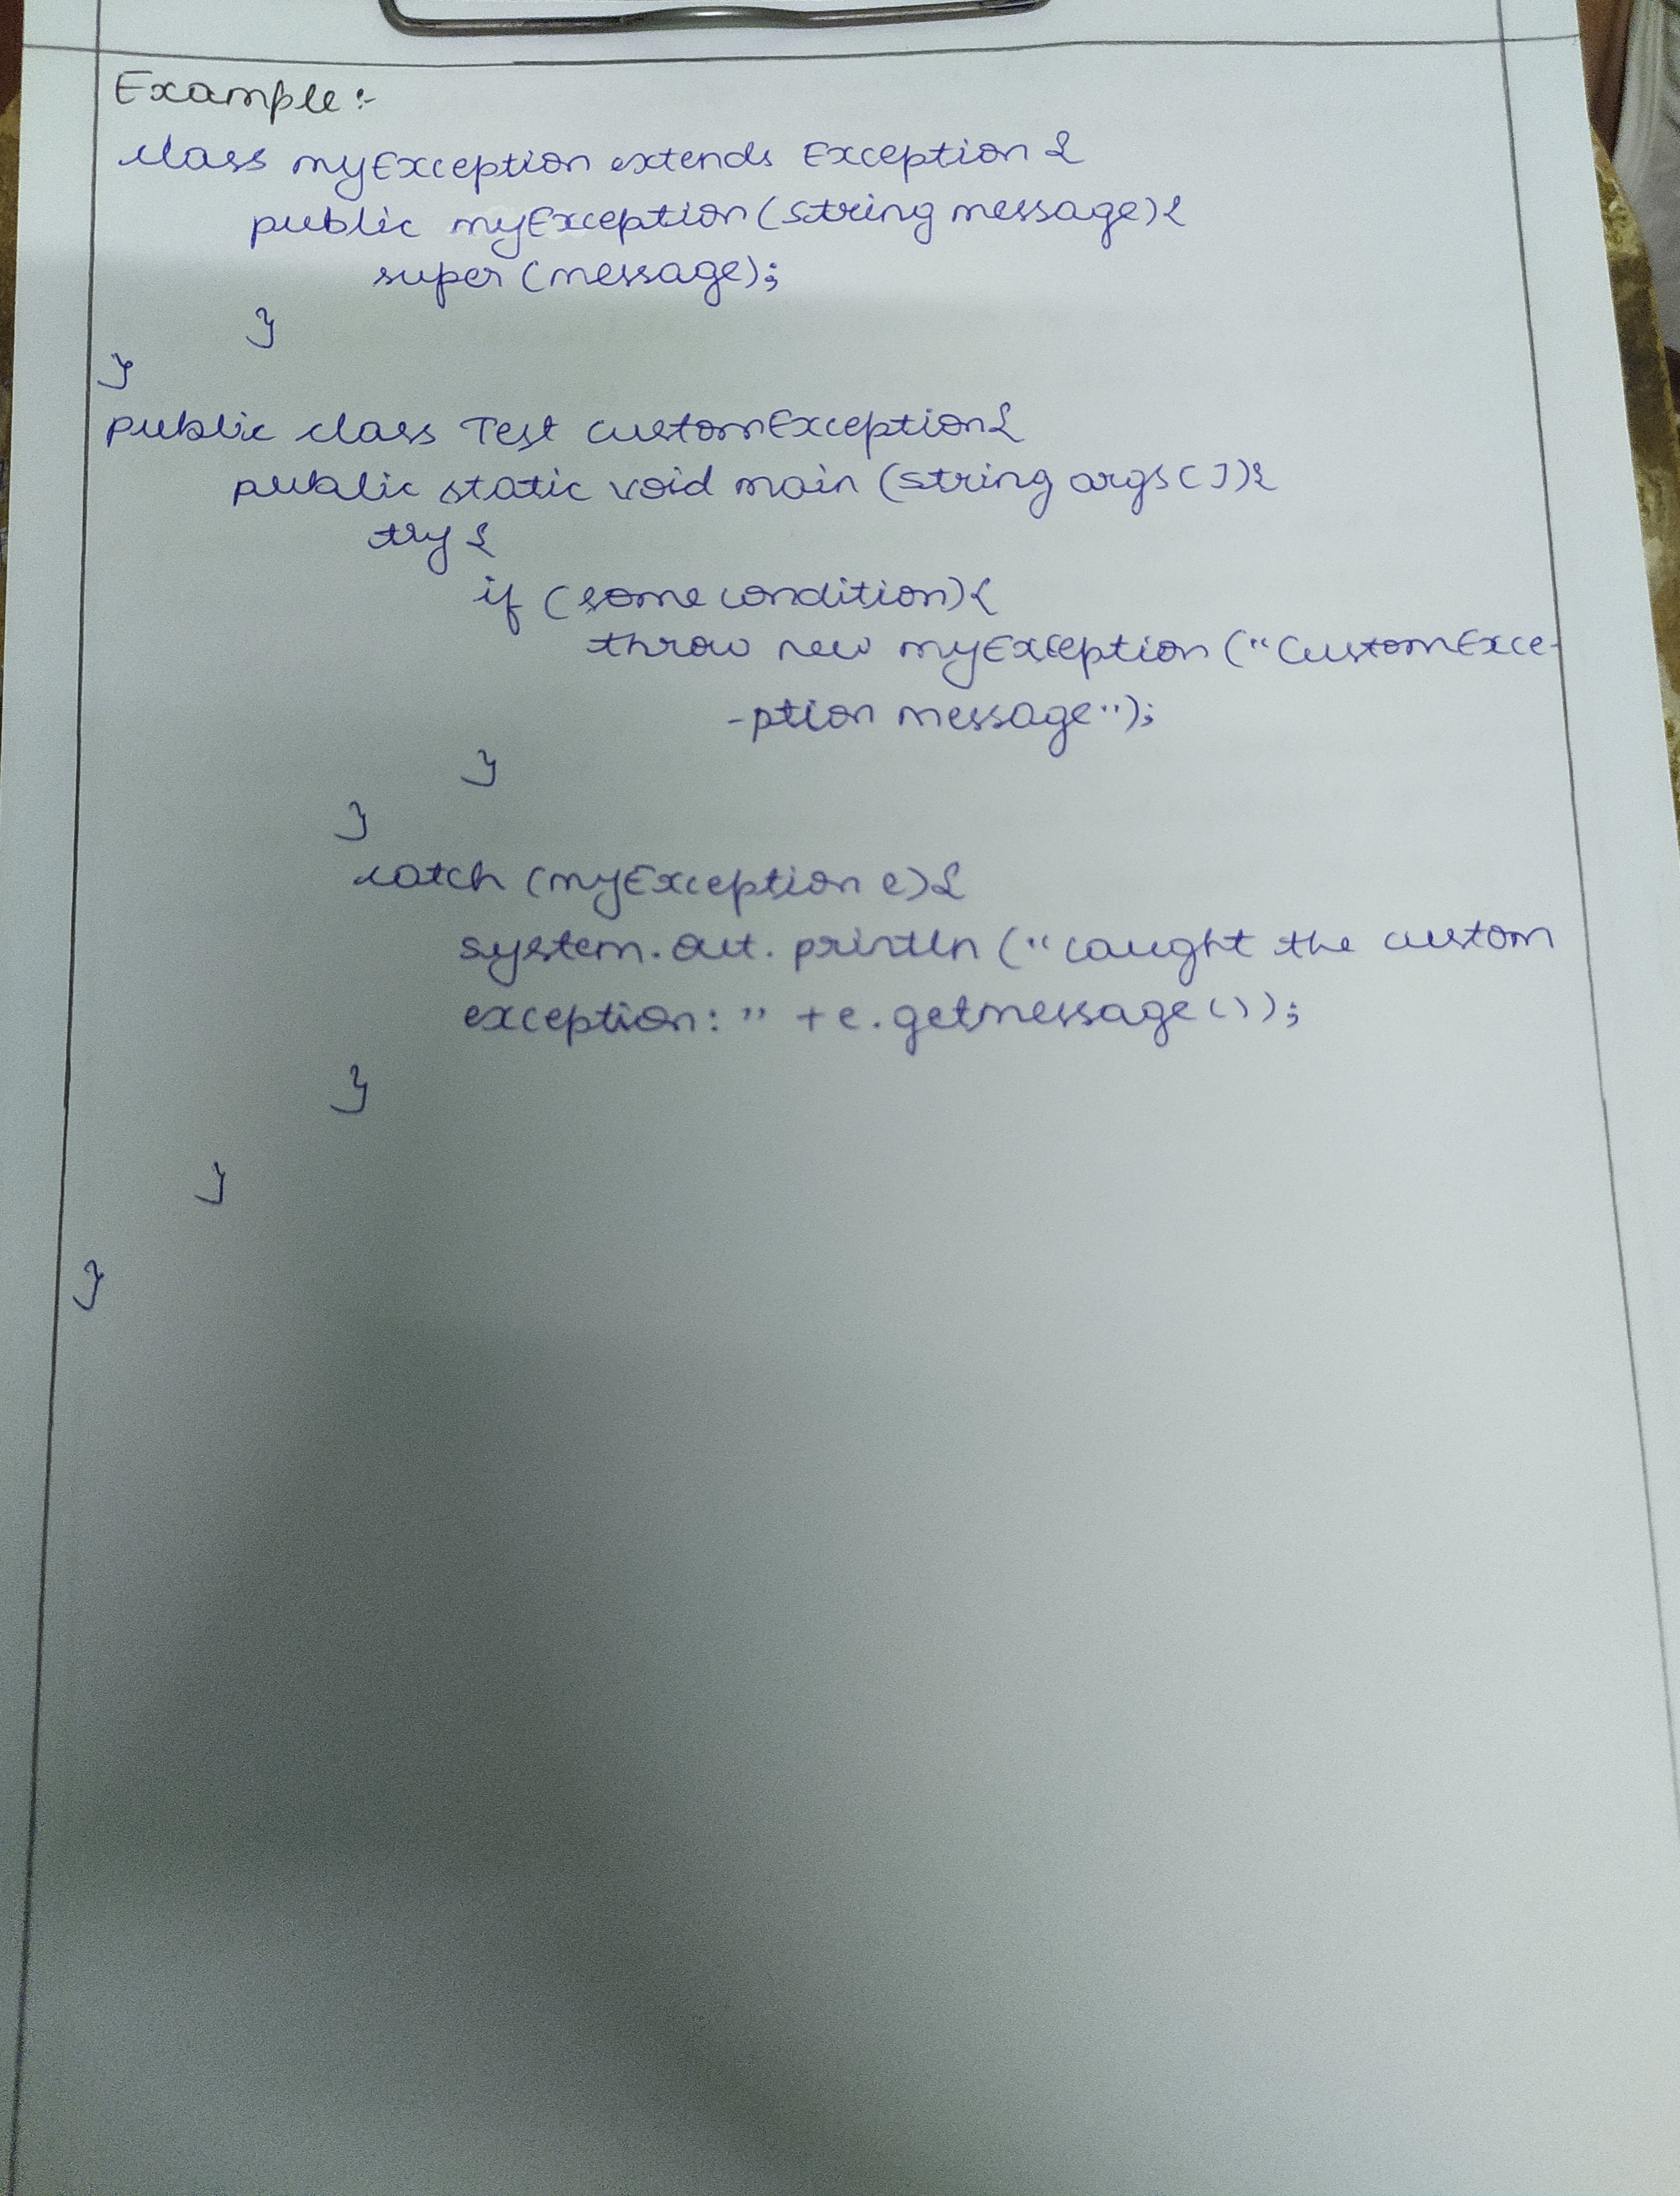 Example :-
class myException extends Exception {
public myException (string message) {
super (message);
}
}
public class Test customException {
public static void main (string args []) {
try {
if (some condition) {
throw new myException ("CustomExce-
-ption message");
}
}
catch (myException e) {
system.out.println ("caught the custom
exception: " + e.getmessage());
}
}
}